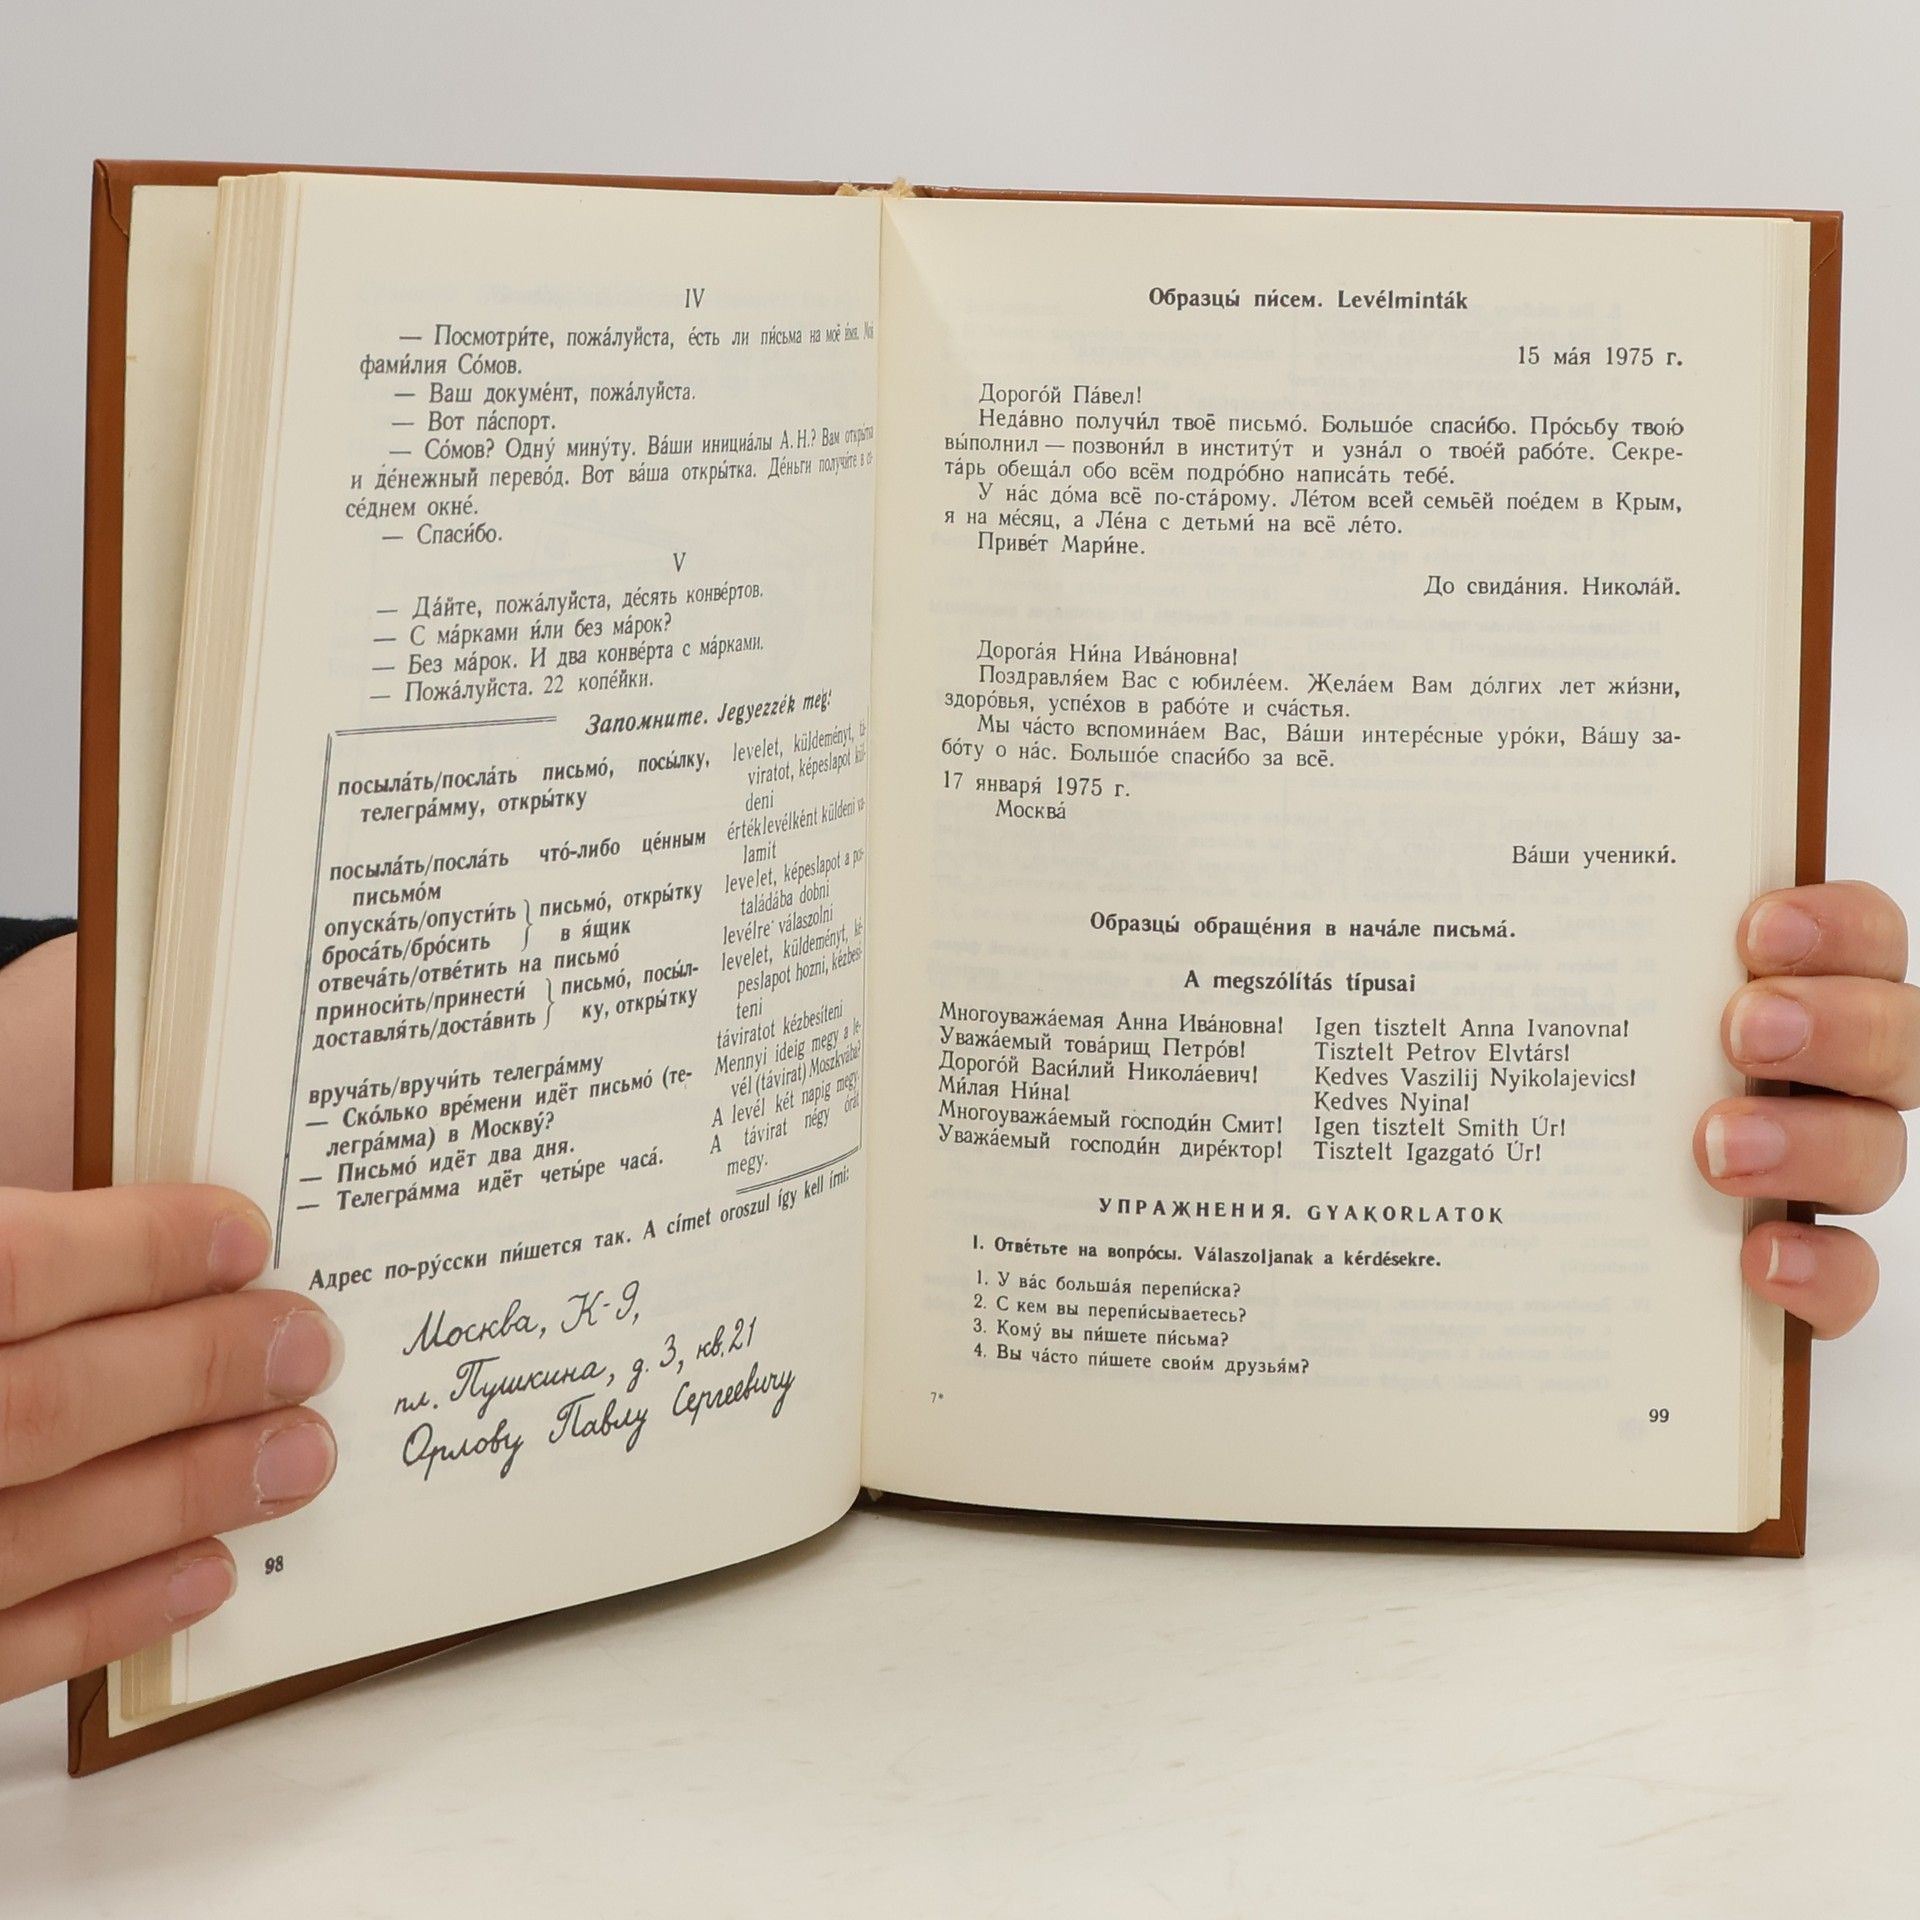 IV
— Посмотри́те, пожа́луйста, е́сть ли пи́сьма на моё и́мя. Моя́
фами́лия Со́мов.
— Ваш докуме́нт, пожа́луйста.
— Вот па́спорт.
— Со́мов? Одну́ мину́ту. Ва́ши инициа́лы А. Н.? Вам откры́тка
и де́нежный перево́д. Вот ва́ша откры́тка. Де́ньги получи́те в со-
се́днем окне́.
— Спаси́бо.
V
— Да́йте, пожа́луйста, де́сять конве́ртов.
— С ма́рками и́ли без ма́рок?
— Без ма́рок. И два конве́рта с ма́рками.
— Пожа́луйста. 22 копе́йки.
Запомните. Jegyezzék meg!
посыла́ть/посла́ть письмо́, посы́лку, levelet, küldeményt, tá-
телегра́мму, откры́тку viratot, képeslapot kül-
deni
посыла́ть/посла́ть что́-либо це́нным értéklevélként küldeni va-
письмо́м lamit
опуска́ть/опусти́ть } письмо́, откры́тку levelet, képeslapot a pos-
броса́ть/бро́сить } в я́щик taládába dobni
отвеча́ть/отве́тить на письмо́ levélre válaszolni
приноси́ть/принести́ } письмо́, посы́л- levelet, küldeményt, ké-
доставля́ть/доста́вить } ку, откры́тку peslapot hozni, kézbesí-
teni
вруча́ть/вручи́ть телегра́мму táviratot kézbesíteni
— Ско́лько вре́мени идёт письмо́ (те- Mennyi ideig megy a le-
легра́мма) в Москву́? vél (távirat) Moszkvába?
— Письмо́ идёт два дня. A levél két napig megy.
— Телегра́мма идёт четы́ре часа́. A távirat négy órát
megy.
Адрес по-ру́сски пи́шется так. A címet oroszul így kell írni:
Москва, К-9,
пл. Пушкина, д. 3, кв. 21
Орлову Павлу Сергеевичу
98
Образцы́ пи́сем. Levélminták
15 ма́я 1975 г.
Дорого́й Па́вел!
Неда́вно получи́л твоё письмо́. Большо́е спаси́бо. Про́сьбу твою́
вы́полнил — позвони́л в институ́т и узна́л о твое́й рабо́те. Секре-
та́рь обеща́л обо всём подро́бно написа́ть тебе́.
У на́с до́ма всё по-ста́рому. Ле́том всей семьёй пое́дем в Крым,
я на ме́сяц, а Ле́на с детьми́ на всё ле́то.
Приве́т Мари́не.
До свида́ния. Никола́й.
Дорога́я Ни́на Ива́новна!
Поздравля́ем Вас с юбиле́ем. Жела́ем Вам до́лгих лет жи́зни,
здоро́вья, успе́хов в рабо́те и сча́стья.
Мы ча́сто вспомина́ем Вас, Ва́ши интере́сные уро́ки, Ва́шу за-
бо́ту о на́с. Большо́е спаси́бо за всё.
17 января́ 1975 г.
Москва́
Ва́ши ученики́.
Образцы́ обраще́ния в нача́ле письма́.
A megszólítás típusai
Многоуважа́емая Анна Ива́новна! Igen tisztelt Anna Ivanovna!
Уважа́емый това́рищ Петро́в! Tisztelt Petrov Elvtárs!
Дорого́й Васи́лий Никола́евич! Kedves Vaszilij Nyikolajevics!
Ми́лая Ни́на! Kedves Nyina!
Многоуважа́емый господи́н Смит! Igen tisztelt Smith Úr!
Уважа́емый господи́н дире́ктор! Tisztelt Igazgató Úr!
УПРАЖНЕНИЯ. GYAKORLATOK
I. Отве́тьте на вопро́сы. Válaszoljanak a kérdésekre.
1. У ва́с больша́я перепи́ска?
2. С кем вы перепи́сываетесь?
3. Кому́ вы пи́шете пи́сьма?
4. Вы ча́сто пи́шете свои́м друзья́м?
7*
99